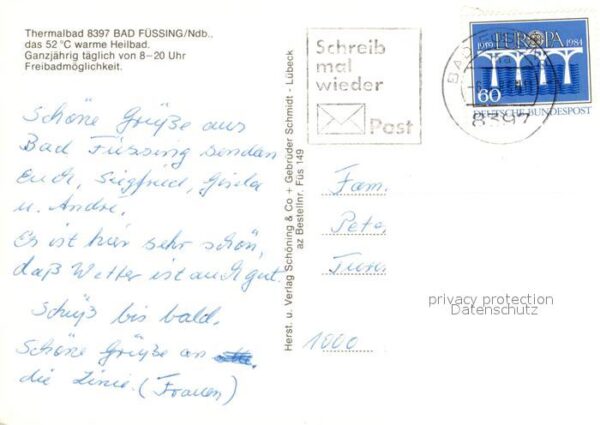 Thermalbad 8397 BAD FÜSSING/Ndb.,
das 52 °C warme Heilbad.
Ganzjährig täglich von 8–20 Uhr
Freibadmöglichkeit.
Schöne Grüße aus
Bad Füssing senden
Euch, Siegfried, Gisela
u. André.
Es ist hier sehr schön,
daß Wetter ist auch gut.
Schüß bis bald.
Schöne Grüße an
die Linie. (Frauen)
Herst. u. Verlag Schöning & Co + Gebrüder Schmidt - Lübeck
az Bestellnr. Füs 149
Schreib
mal
wieder
Post
1949 EUROPA 1984
60
DEUTSCHE BUNDESPOST
8397
Fam.
Pete
1000
privacy protection
Datenschutz